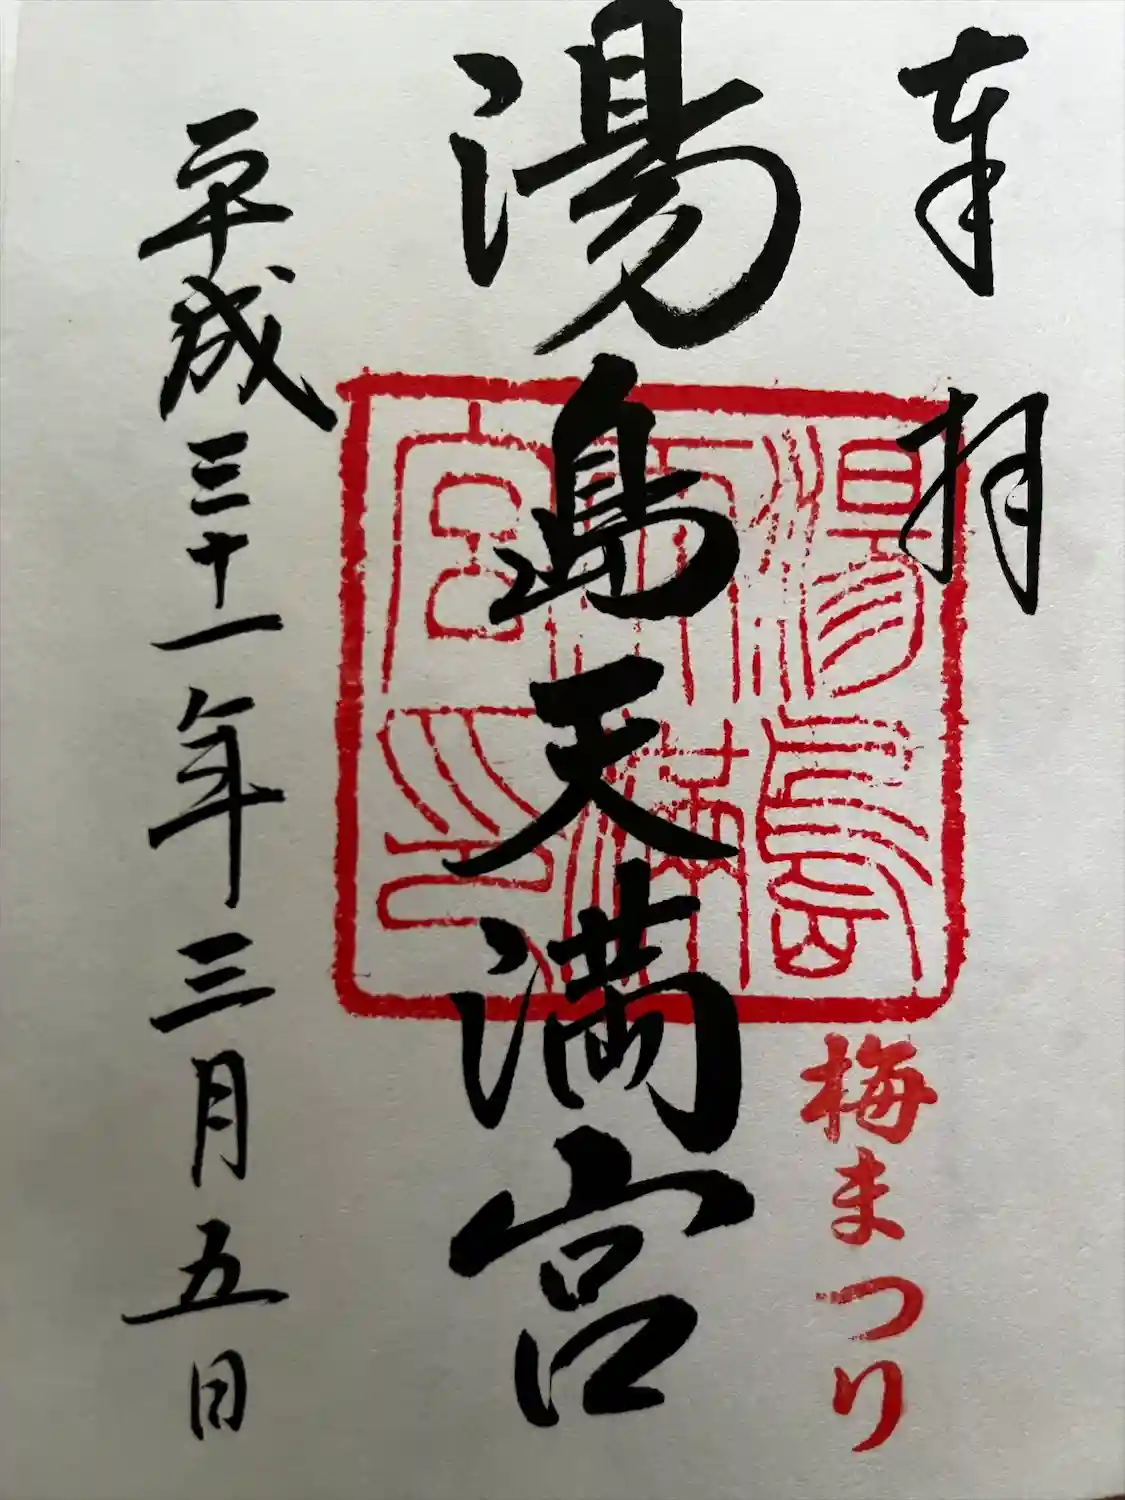 奉拝
湯島天満宮
湯島
天満
宮印
梅まつり
平成三十一年三月五日